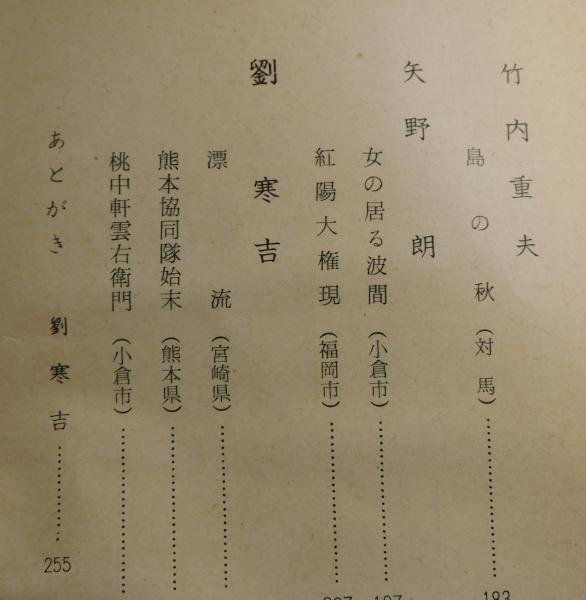 竹内重夫
島の秋（対馬）……………183
矢野朗
女の居る波間（小倉市）……………
紅陽大権現（福岡市）……………
劉寒吉
漂流（宮崎県）……………
熊本協同隊始末（熊本県）……………
桃中軒雲右衛門（小倉市）……………
あとがき 劉寒吉……………255